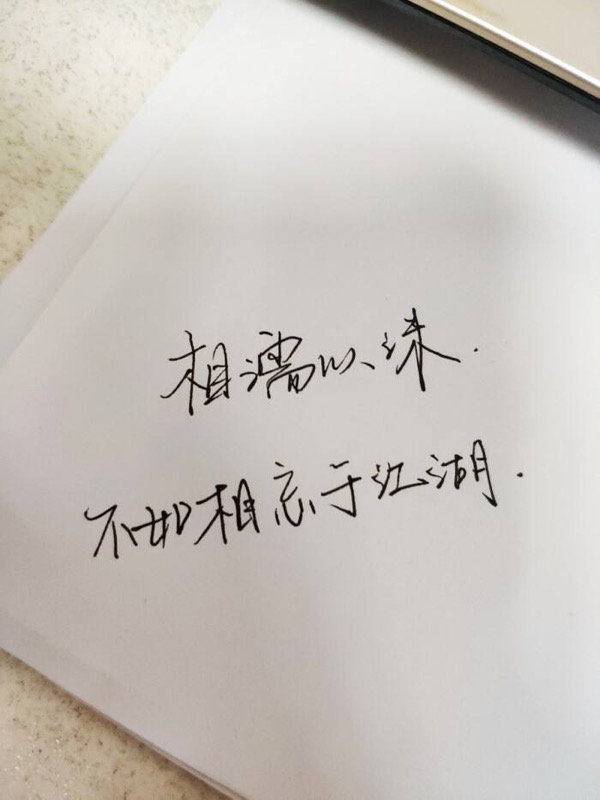 相濡以沫.
不如相忘于江湖.